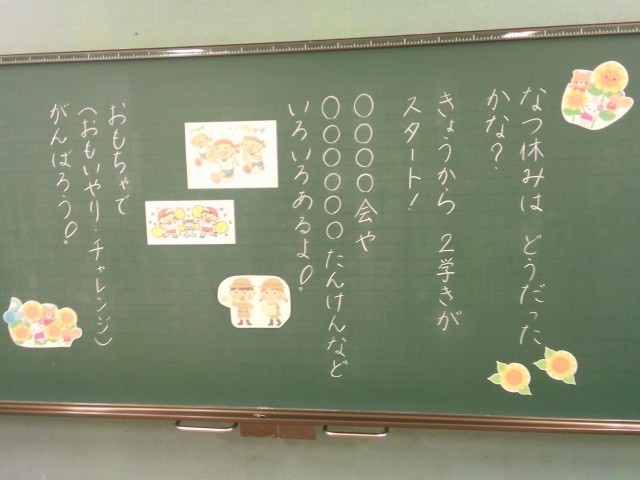 なつ休みは どうだった
かな?
きょうから 2学きが
スタート!
○○○○会や
○○○○○○たんけんなど
いろいろあるよ!
おもちゃで
(おもいやり・チャレンジ)
がんばろう!